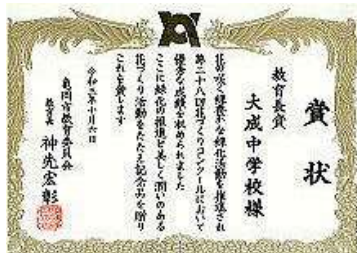 賞状
教育長賞
大成中学校様
花の咲く緑豊かな緑化活動を推進され
第二十八回花づくりコンクールにおいて
優秀な成績を収められました
ここに緑化の推進と美しく潤いのある
花づくり活動をたたえ記念品を贈り
これを賞します
令和元年十月六日
亀岡市教育委員会
教育長 神先宏彰